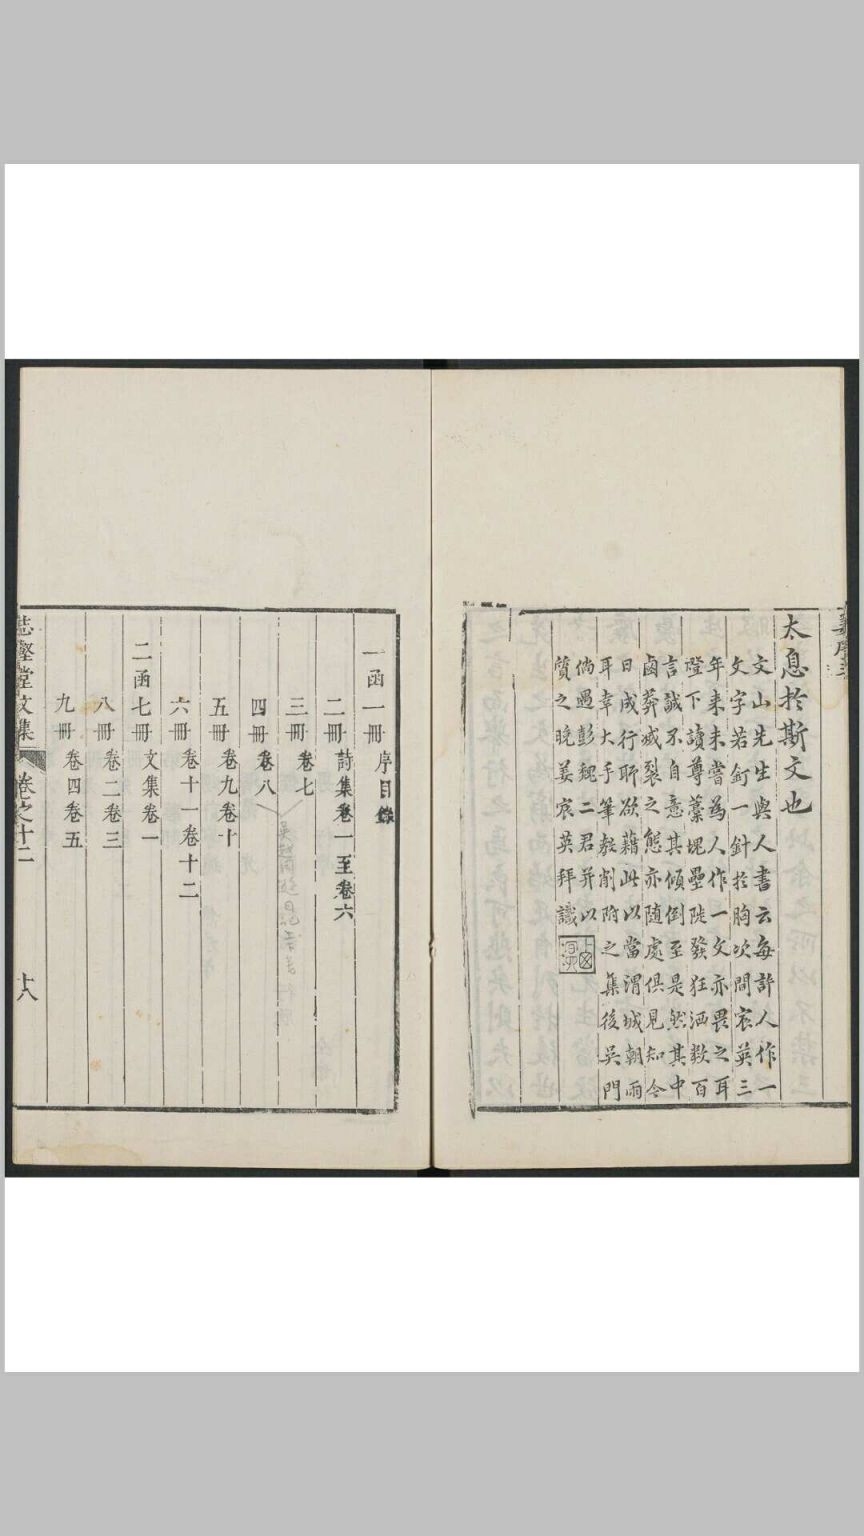 太息於斯文也
文山先生與人書云每許人作一
文字若釘一針於胸次間宸英三
年来未嘗為人作一文亦畏之耳
燈下讀尊藁塊壘陡發狂洒数百
言誠不自意其傾倒至是然其中
鹵莽烕裂之態亦随處俱見知今
日成行聊欲藉此以當渭城朝雨
耳幸大手筆裁削附之集後吳門
倘過彭魏二君并以
質之晚姜宸英拜識
一函一冊 序目錄
二冊 詩集卷一至卷六
三冊 卷七
四冊 卷八
五冊 卷九卷十
六冊 卷十一卷十二
二函七冊 文集卷一
八冊 卷二卷三
九冊 卷四卷五
壑堂文集 卷之十二 十八